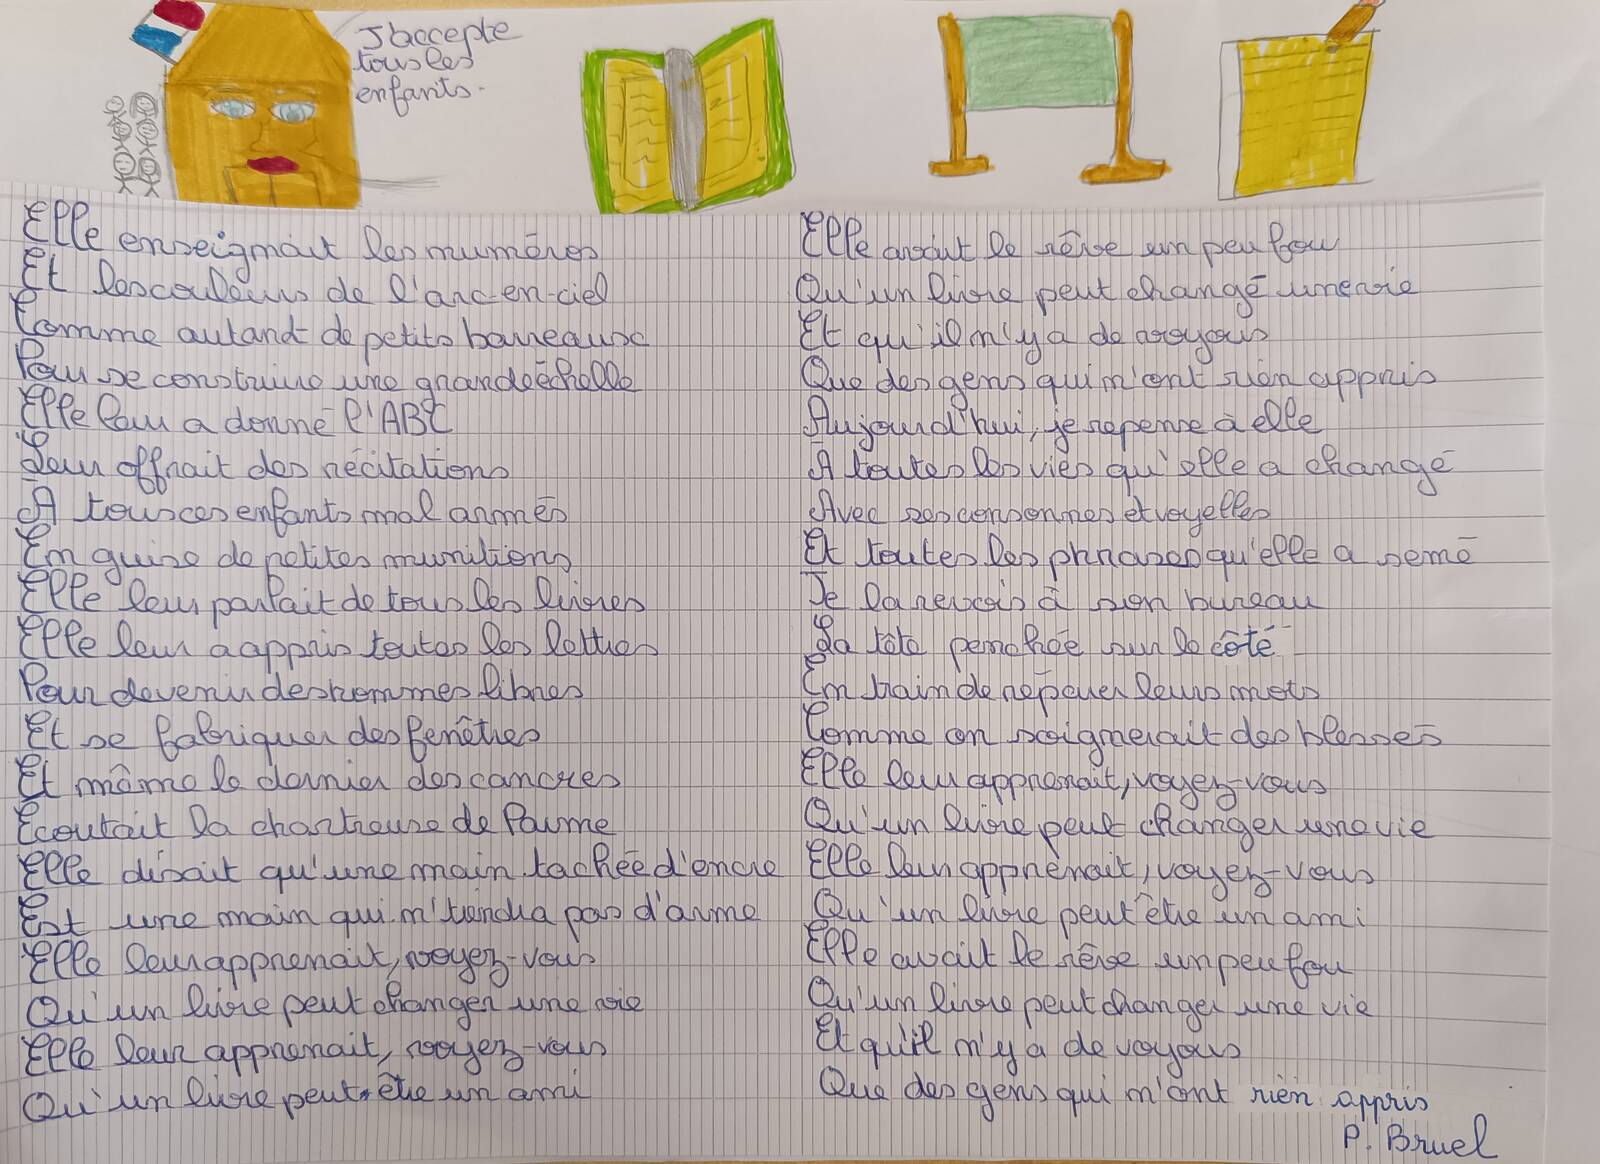 J'accepte
tous les
enfants.
Elle enseignait les numéros
Et les couleurs de l'arc-en-ciel
Comme autant de petits barreaux
Pour se construire une grande échelle
Elle leur a donné l'ABC
Leur offrait des récitations
A tous ces enfants mal armés
En guise de petites munitions
Elle leur parlait de tous les livres
Elle leur a appris toutes les lettres
Pour devenir des hommes libres
Et se fabriquer des fenêtres
Et même le dernier des cancres
Ecoutait la chartreuse de Parme
Elle disait qu'une main tachée d'encre
Est une main qui n'tiendra pas d'arme
Elle leur apprenait, voyez-vous
Qu'un livre peut changer une vie
Elle leur apprenait, voyez-vous
Qu'un livre peut être un ami
Elle avait le rêve un peu fou
Qu'un livre peut changé une vie
Et qu'il n'y a de voyous
Que des gens qui n'ont rien appris
Aujourd'hui, je repense à elle
A toutes les vies qu'elle a changé
Avec ses consonnes et voyelles
Et toutes les phrases qu'elle a semé
Je la revois à son bureau
La tête penchée sur le côté
En train de réparer leurs mots
Comme on soignerait des blessés
Elle leur apprenait, voyez-vous
Qu'un livre peut changer une vie
Elle leur apprenait, voyez-vous
Qu'un livre peut être un ami
Elle avait le rêve un peu fou
Qu'un livre peut changer une vie
Et qu'il n'y a de voyous
Que des gens qui n'ont rien appris
P. Bruel